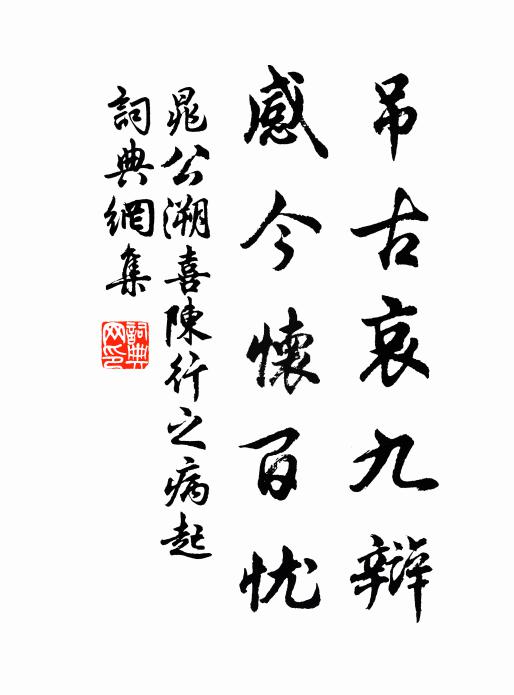 吊古哀九辩
感今懷百忧
晁公溯喜陳行之病起
詞典網集
詞典网印